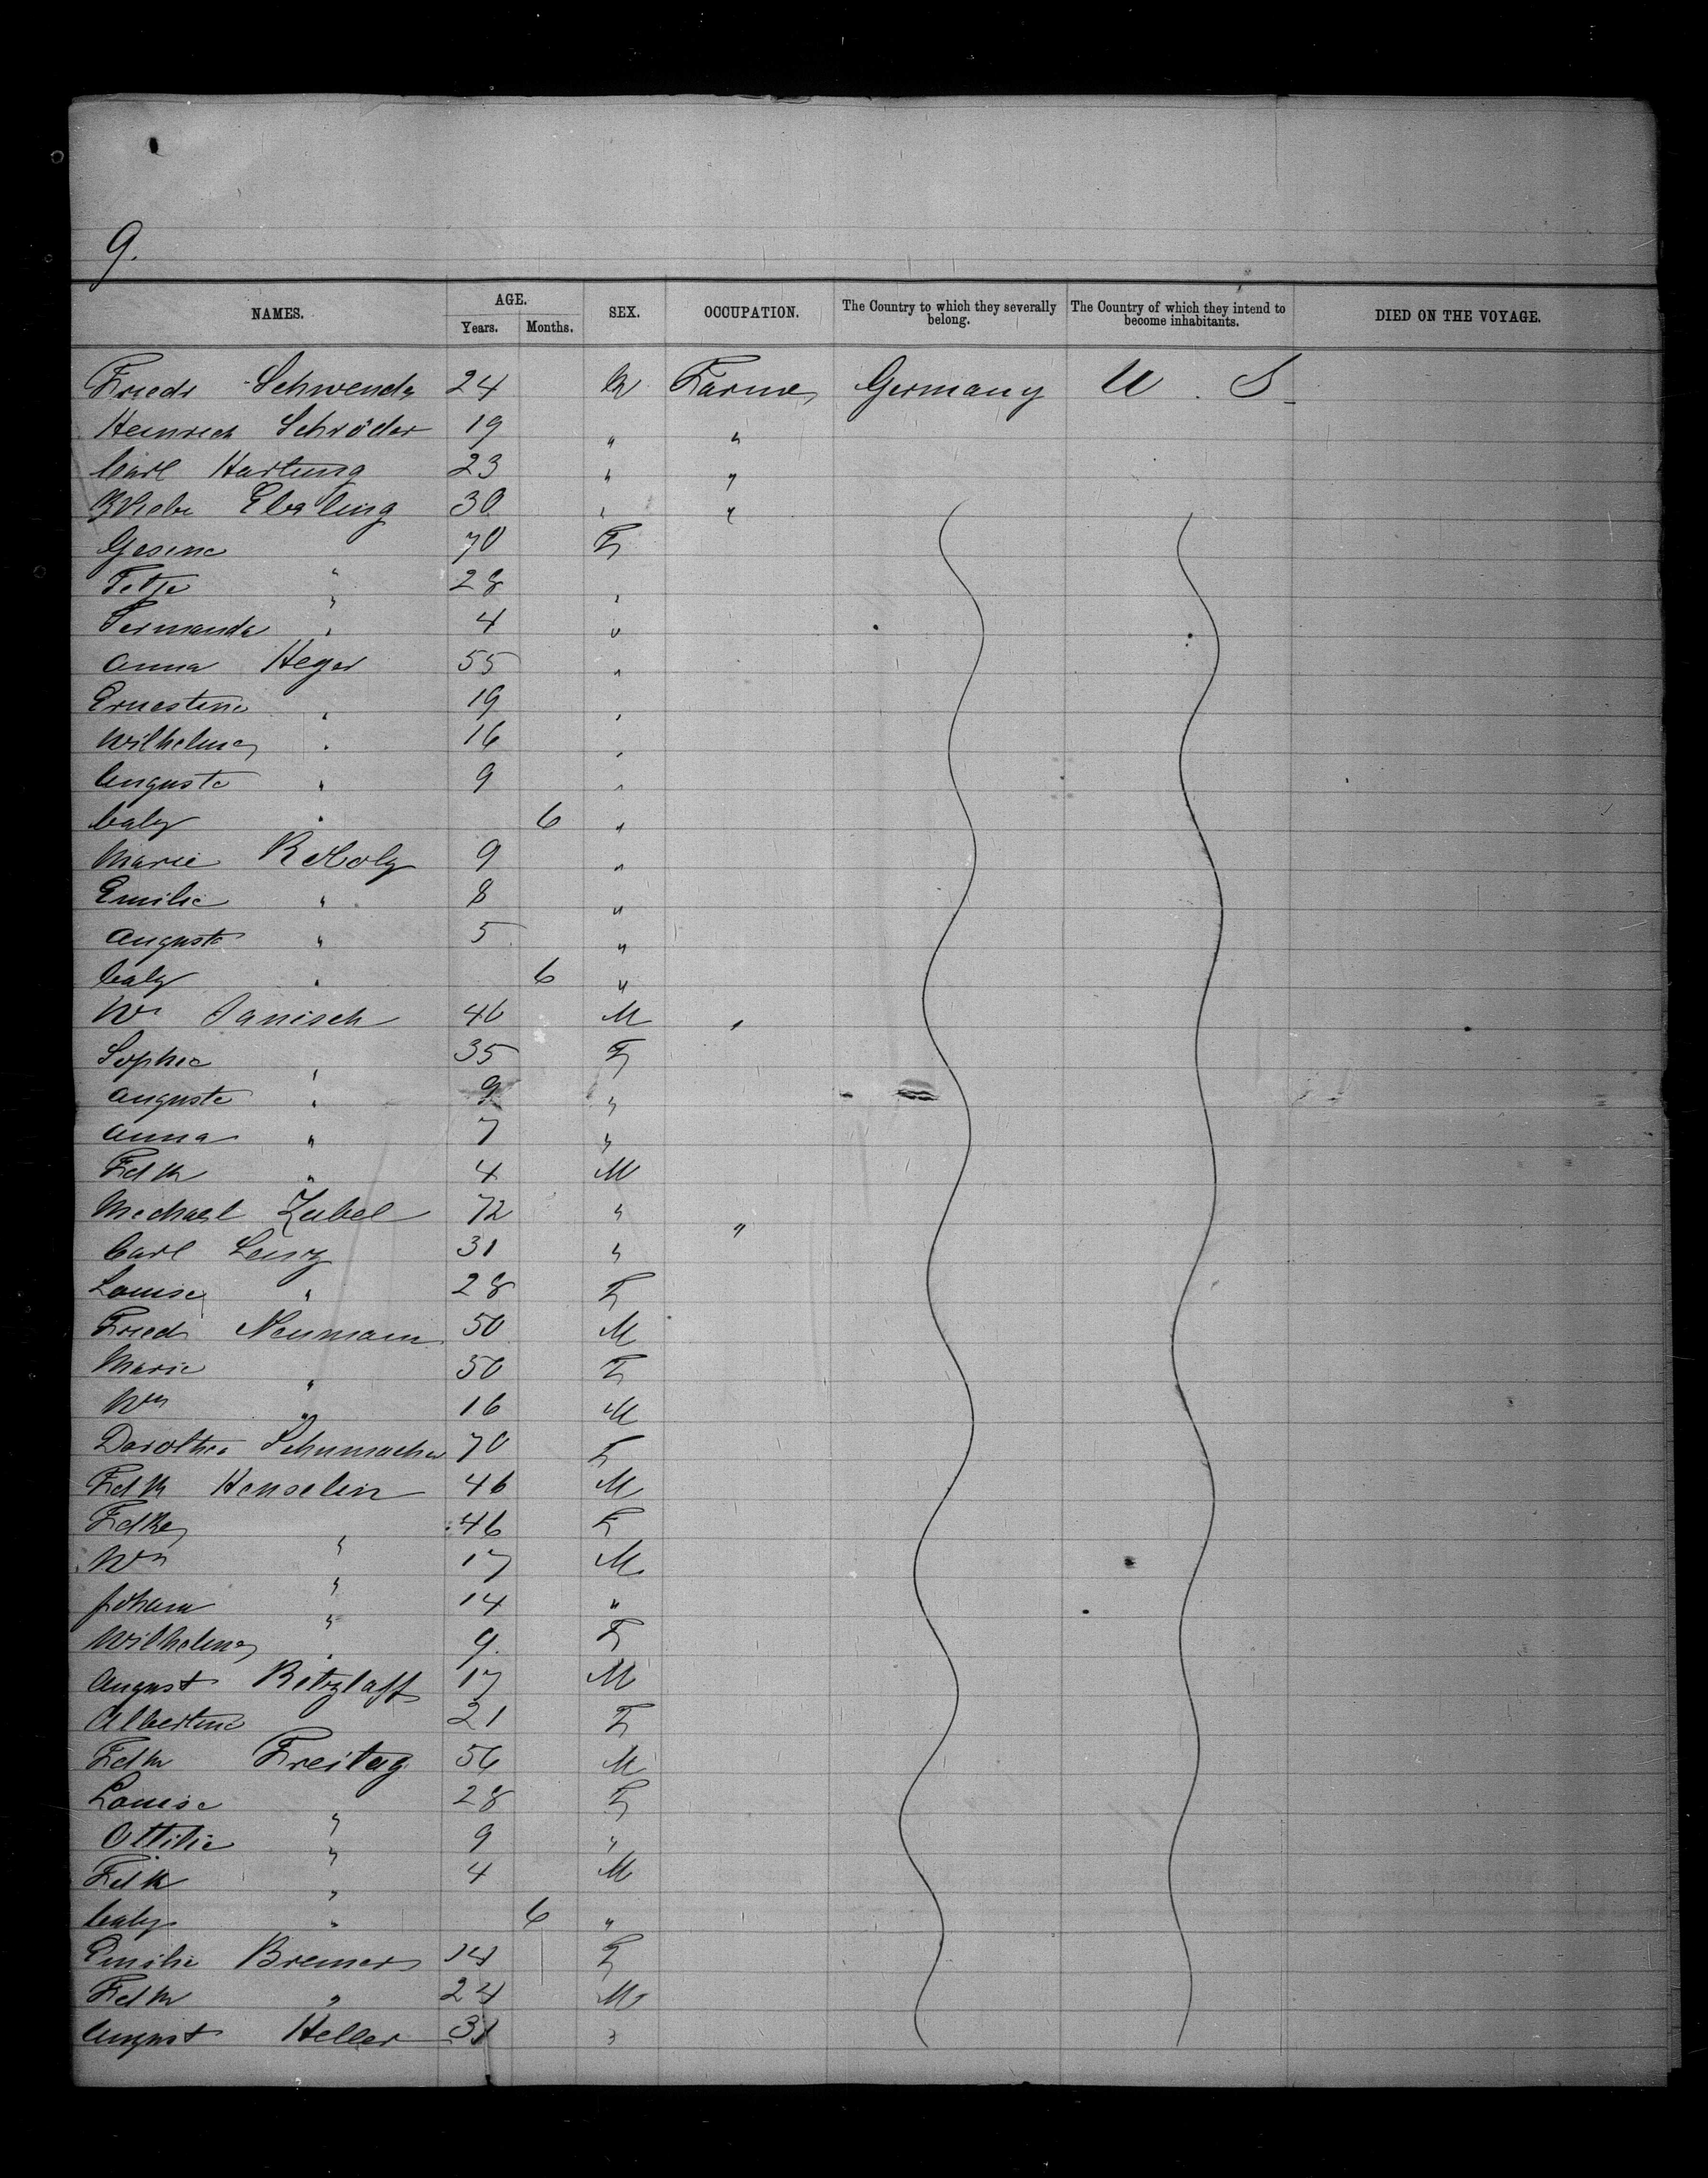 9.
NAMES. AGE. Years. Months. SEX. OCCUPATION. The Country to which they severally belong. The Country of which they intend to become inhabitants. DIED ON THE VOYAGE.
Friedr Schwendz 24 M Farmer Germany U. S.
Heinrich Schröder 19 " "
Carl Hartung 23 " "
Ebeling 30 " "
Gesine 70 F
" 28 "
" 4 "
Anna Heger 55 "
Ernestine " 19 "
Wilhelma " 16 "
Auguste " 9 "
baby " 6 "
Marie 9 "
Emilie " 8 "
Auguste " 5 "
baby " 6 "
Wm Janisch 46 M "
Sophie " 35 F
Auguste " 9 "
Anna " 7 "
Fdk " 4 M
Michael Zubel 72 " "
Carl Lenz 31 "
Louise " 28 F
Friedr Neumann 50 M
Marie " 50 F
Wm " 16 M
Dorothea Schumacher 70 F
Fdk Henselin 46 M
Fdke " 46 F
Wm " 17 M
Johann " 14 "
Wilhelma " 9 F
August Retzlaff 17 M
Albertine 21 F
Fdk Freitag 56 M
Louise " 28 F
Ottilie " 9 "
Fdk " 4 M
baby " 6 "
Emilie Bremer 14 F
Fdk " 24 M
August Heller 31 "